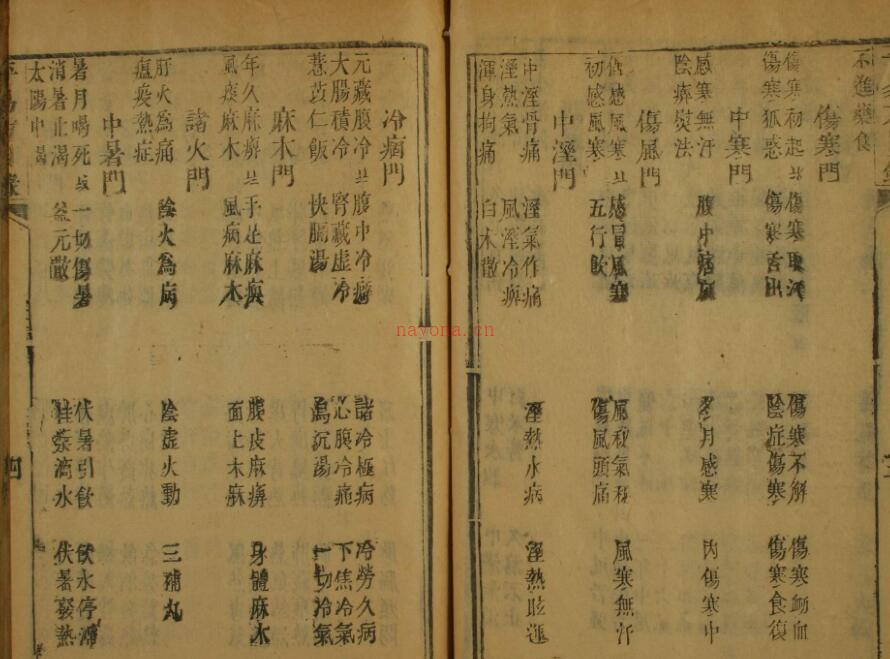 不進藥食
傷寒門
傷寒初起 傷寒取汗 傷寒不解 傷寒衂血
傷寒狐惑 傷寒舌出 陰症傷寒 傷寒食復
中寒門
感寒無汗 腹中 月感寒 內傷寒中
陰痺熨法
傷風門
傷感風寒 感冒風寒 風秘氣秘 風寒無汗
初感風寒 五行飲 傷風頭痛
中溼門
中溼骨痛 溼氣作痛 溼熱水病 溼熱眩運
溼熱氣 風溼冷痺
渾身拘痛 白术散
冷痼門
元藏腹冷 腹中冷癖 諸冷極病 冷勞久病
大腸積冷 腎藏虛冷 心腹冷痛 下焦冷氣
薏苡仁飯 快膈湯 瀉沉湯 一切冷氣
麻木門
年久麻痺 手足麻痪 腹皮麻痺 身體麻木
風痰麻木 風病麻木 面上木麻
諸火門
肝火為痛 陰火為病 陰虛火動 三補丸
瘟疫熱症
中暑門
暑月喝死 一切傷暑 伏暑引飲 伏水停滯
消暑止渴 益元散 桂苓滴水 伏暑發熱
太陽中暍
nayona.cn